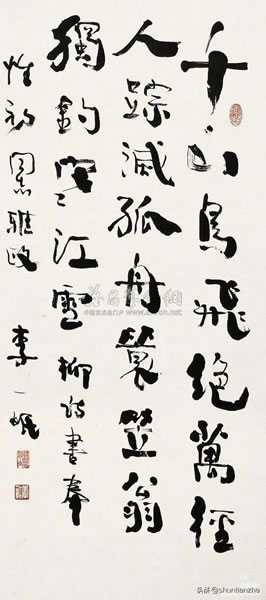 千山鳥飛絕萬徑
人踪滅孤舟簑笠翁
獨釣寒江雪柳詩書奉
惟初同志雅政
李一氓
头条@shuntianzhe